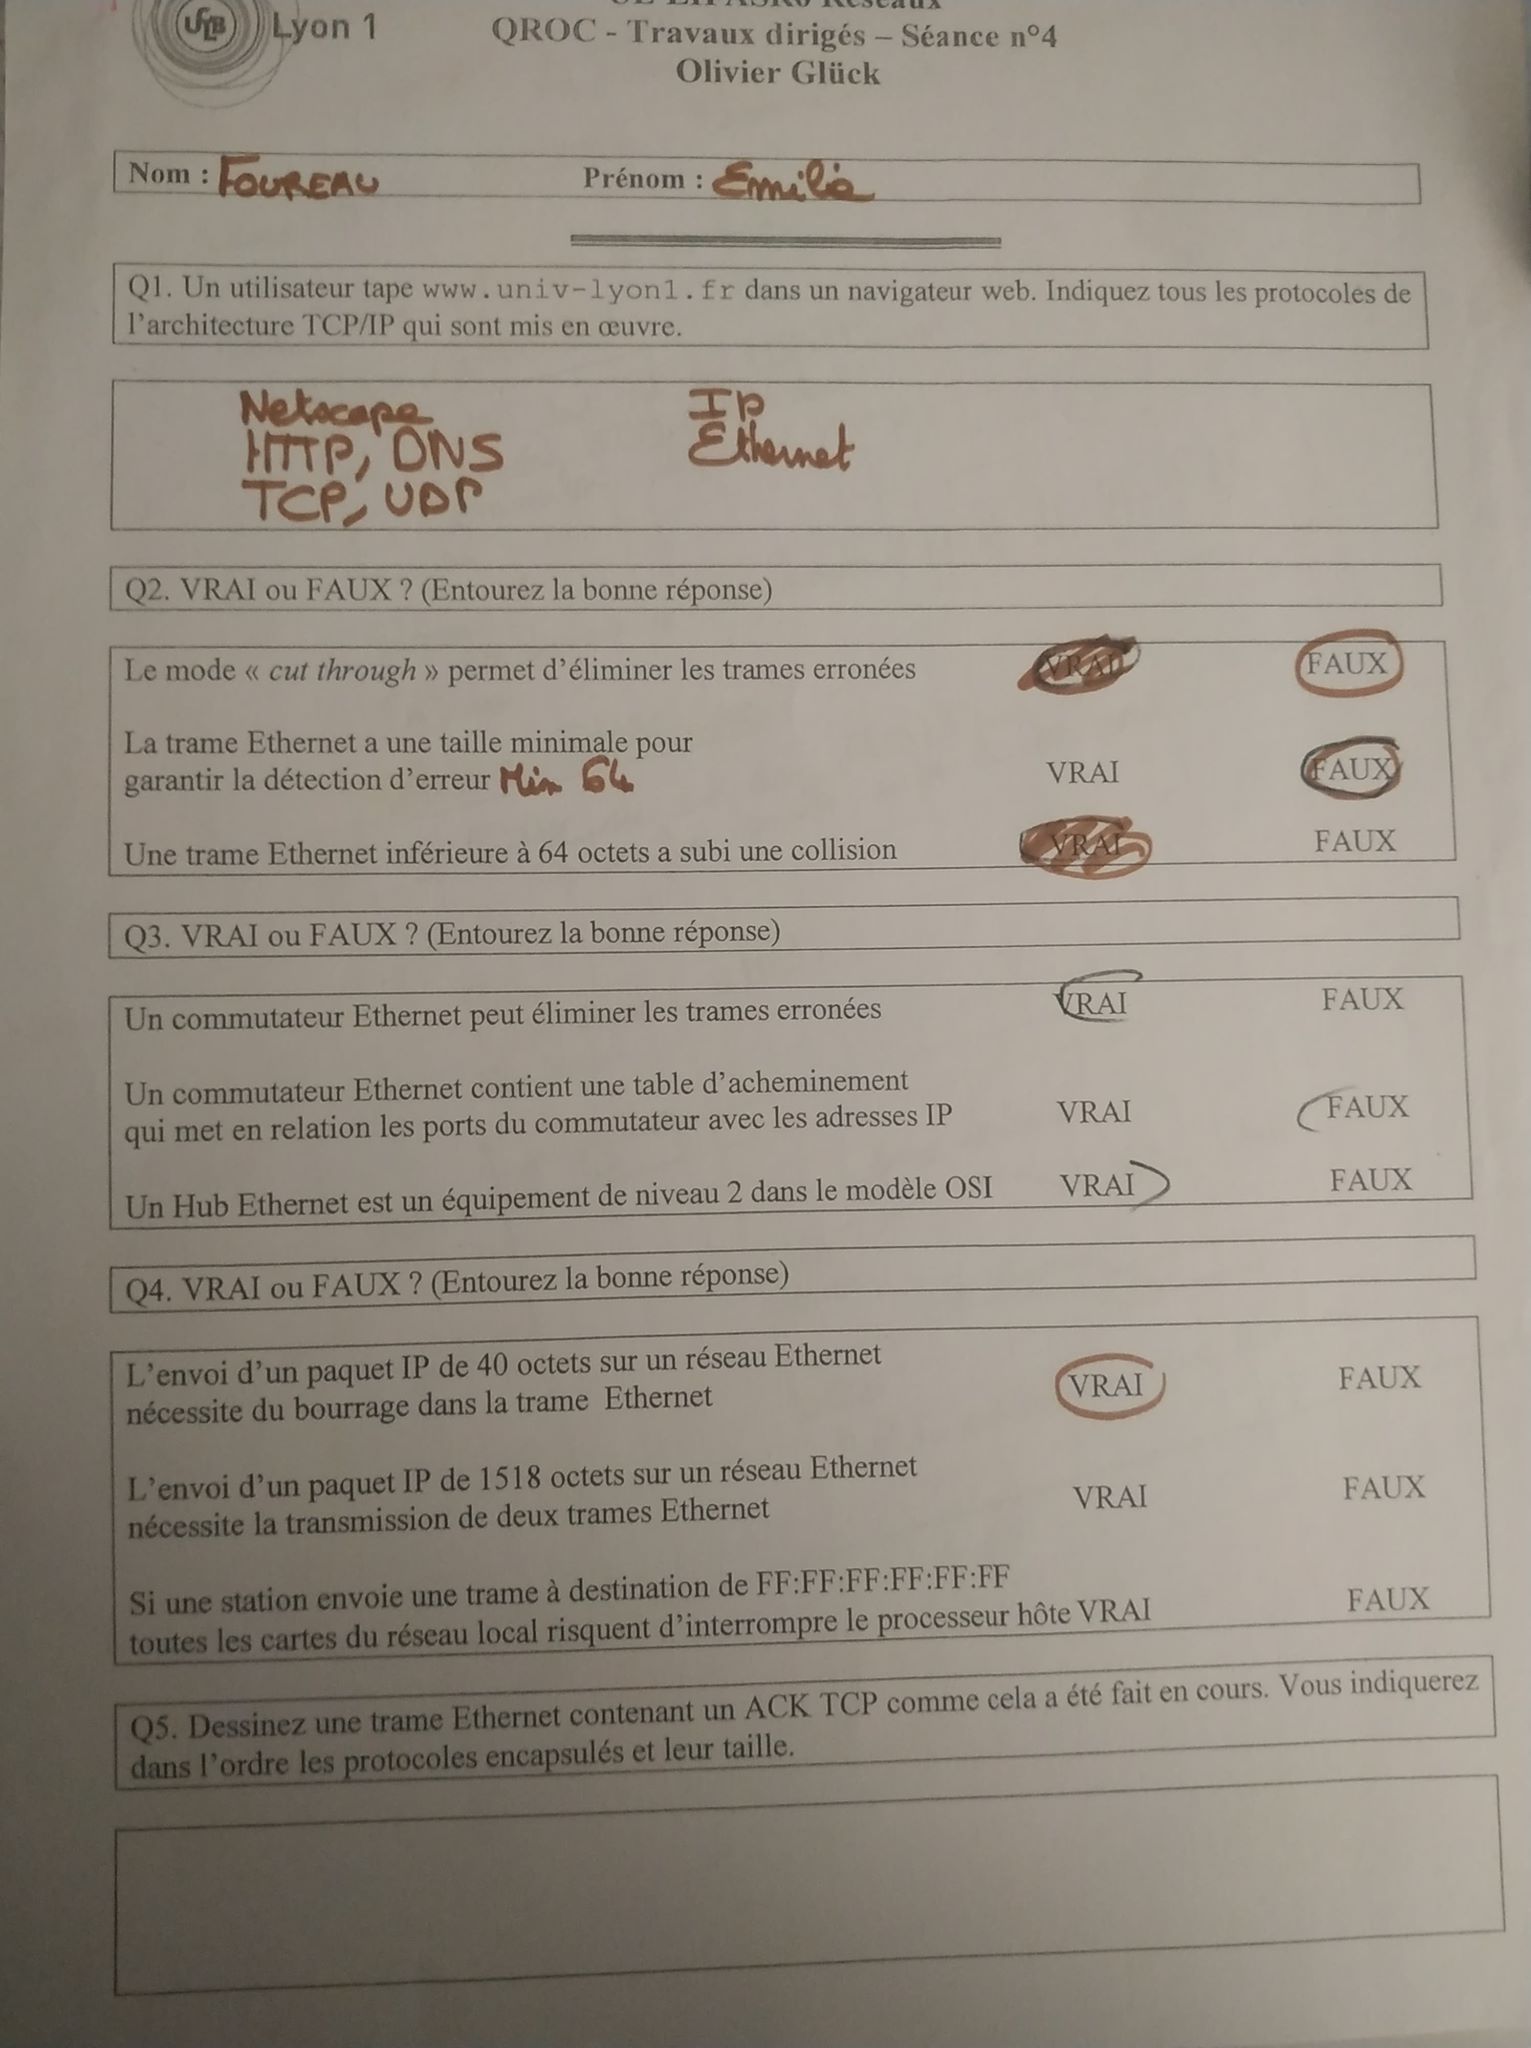 UCLB Lyon 1
QROC - Travaux dirigés – Séance n°4
Olivier Glück
Nom : FOUREAU Prénom : Emilia
Q1. Un utilisateur tape www.univ-lyon1.fr dans un navigateur web. Indiquez tous les protocoles de
l'architecture TCP/IP qui sont mis en œuvre.
Netscape
HTTP, DNS
TCP, UDP
IP
Ethernet
Q2. VRAI ou FAUX ? (Entourez la bonne réponse)
Le mode « cut through » permet d'éliminer les trames erronées VRAI FAUX
La trame Ethernet a une taille minimale pour
garantir la détection d'erreur Min 64 VRAI FAUX
Une trame Ethernet inférieure à 64 octets a subi une collision VRAI FAUX
Q3. VRAI ou FAUX ? (Entourez la bonne réponse)
Un commutateur Ethernet peut éliminer les trames erronées VRAI FAUX
Un commutateur Ethernet contient une table d'acheminement
qui met en relation les ports du commutateur avec les adresses IP VRAI FAUX
Un Hub Ethernet est un équipement de niveau 2 dans le modèle OSI VRAI FAUX
Q4. VRAI ou FAUX ? (Entourez la bonne réponse)
L'envoi d'un paquet IP de 40 octets sur un réseau Ethernet
nécessite du bourrage dans la trame Ethernet VRAI FAUX
L'envoi d'un paquet IP de 1518 octets sur un réseau Ethernet
nécessite la transmission de deux trames Ethernet VRAI FAUX
Si une station envoie une trame à destination de FF:FF:FF:FF:FF:FF
toutes les cartes du réseau local risquent d'interrompre le processeur hôte VRAI FAUX
Q5. Dessinez une trame Ethernet contenant un ACK TCP comme cela a été fait en cours. Vous indiquerez
dans l'ordre les protocoles encapsulés et leur taille.